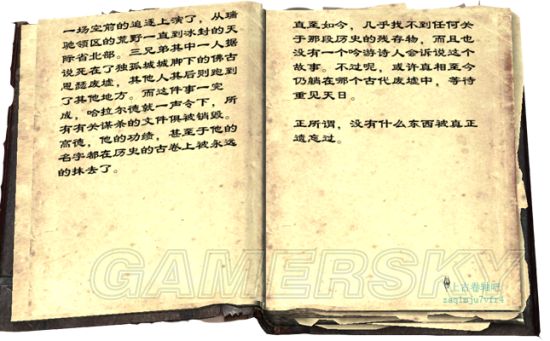 一场空前的追逐上演了，从瑞
驰领区的荒野一直到冰封的天
际省北部。三兄弟其中一人据
说死在了独孤城城脚下的佛古
恩瑟废墟，其他人其后则跑到
了其他地方。而这件事一完
成，哈拉尔德就一声令下，所
有有关谋杀的文件俱被销毁。
高德，他的功绩，甚至于他的
名字都在历史的古卷上被永远
的抹去了。
直至如今，几乎找不到任何关
于那段历史的残存物，而且也
没有一个吟游诗人会诉说这个
故事。不过呢，或许真相至今
仍躺在哪个古代废墟中，等待
重见天日。
正所谓，没有什么东西被真正
遗忘过。
GAMERSKY
上古卷轴吧
zaqimju7vfr4